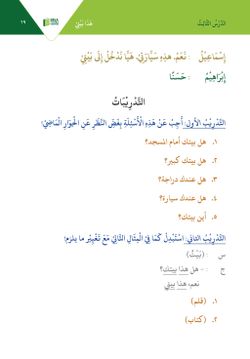 الدَّرْسُ الثَّالِثُ
هَذَا بَيْتِيْ
٢٩
إِسْمَاعِيْلُ : نَعَمْ، هذِهِ سَيَّارَتِيْ، هَيَّا نَدْخُلْ إِلَى بَيْتِيْ
إِبْرَاهِيْمُ : حَسَنًا
التَّدْرِيْبَاتُ
التَّدْرِيْبُ الأَوَّلُ: أَجِبْ عَنْ هَذِهِ الْأَسْئِلَةِ بِغَضِّ النَّظَرِ عَنِ الْحِوَارِ الْمَاضِيْ:
١. هل بيتك أمام المسجد؟
٢. هل بيتك كبير؟
٣. هل عندك دراجة؟
٤. هل عندك سيارة؟
٥. أين بيتك؟
التَّدْرِيْبُ الثاني: اسْتَبْدِلْ كَمَا فِيْ الْمِثَالِ التَّالِيْ مَعَ تَغْيِيْرِ ما يلزم!
س : (بَيْتٌ)
ج : - هل هذا بيتك؟
نعم، هذا بيتي
١. (قلم)
٢. (كتاب)